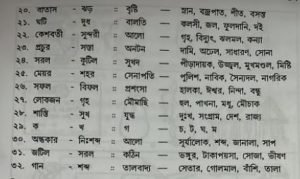 ২০. বাতাস - ঝড় :: বৃষ্টি — স্নান, বজ্রপাত, শীত, বসন্ত
২১. ঘটি - দুধ :: বালতি — কলসী, জল, ফুলদানি, দই
২২. কেশবতী - সুন্দরী :: আলো — গৃহ, বিদ্যুৎ, ঝলমল, কন্যা
২৩. প্রচুর - সস্তা :: অনটন — দামি, অঢেল, সাধারণ, সোনা
২৪. সরল - কুটিল :: সুখদ — পীড়াদায়ক, উজ্জ্বল, মুখমণ্ডল, মিষ্টি
২৫. মেয়র - শহর :: সেনাপতি — পুলিশ, নাবিক, সৈন্যদল, নাগরিক
২৬. সফল - বিফল :: প্রশংসা — হালকা, ঈশ্বর, নিন্দা, বন্ধু
২৭. লোকজন - গৃহ :: মৌমাছি — হুল, পাখনা, মধু, মৌচাক
২৮. শান্তি - সুখ :: যুদ্ধ — দুঃখ, সংগ্রাম, দেশ, রাজ্য
২৯. ক - খ :: গ — চ, ট, ঘ, ম
৩০. অন্ধকার - নিঃশব্দ :: আলো — সূর্যালোক, শব্দ, জানালা, সাপ
৩১. জটিল - সরল :: কঠিন — ভঙ্গুর, টাকাপয়সা, সোজা, ভীষণ
৩২. গান - শব্দ :: তালবাদ্য — সেতার, গোলমাল, বাঁশি, তালা